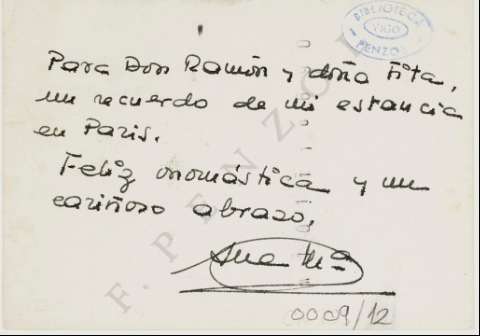 BIBLIOTECA
VIGO
PENZOL
Para Don Ramón y doña Fita,
un recuerdo de mi estancia
en Paris.
Feliz onomástica y un
cariñoso abrazo,
Ana Mª
F. PENZOL
0009/12